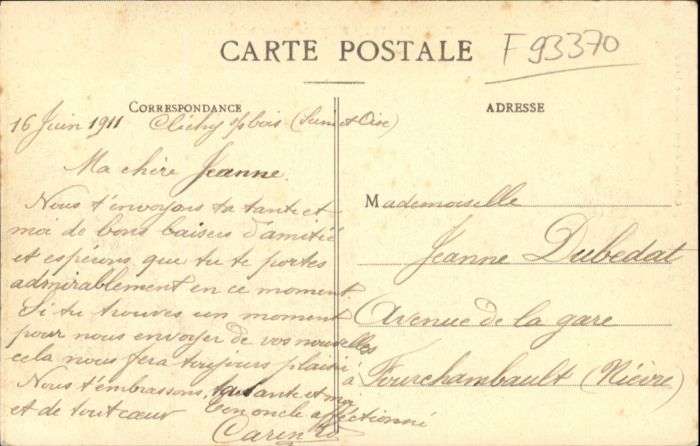 CARTE POSTALE
F 93370
CORRESPONDANCE
ADRESSE
16 Juin 1911 Clichy s/bois (Seine et Oise)
Ma chère Jeanne
Nous t'envoyons ta tante et
moi de bons baisers d'amitié
et espérons que tu te portes
admirablement en ce moment.
Si tu trouves un moment
pour nous envoyer de vos nouvelles
cela nous fera toujours plaisir
Nous t'embrassons, ta tante et moi
et de tout cœur
Ton oncle affectionné
Mademoiselle
Jeanne Dubedat
Avenue de la gare
à Fourchambault (Nièvre)